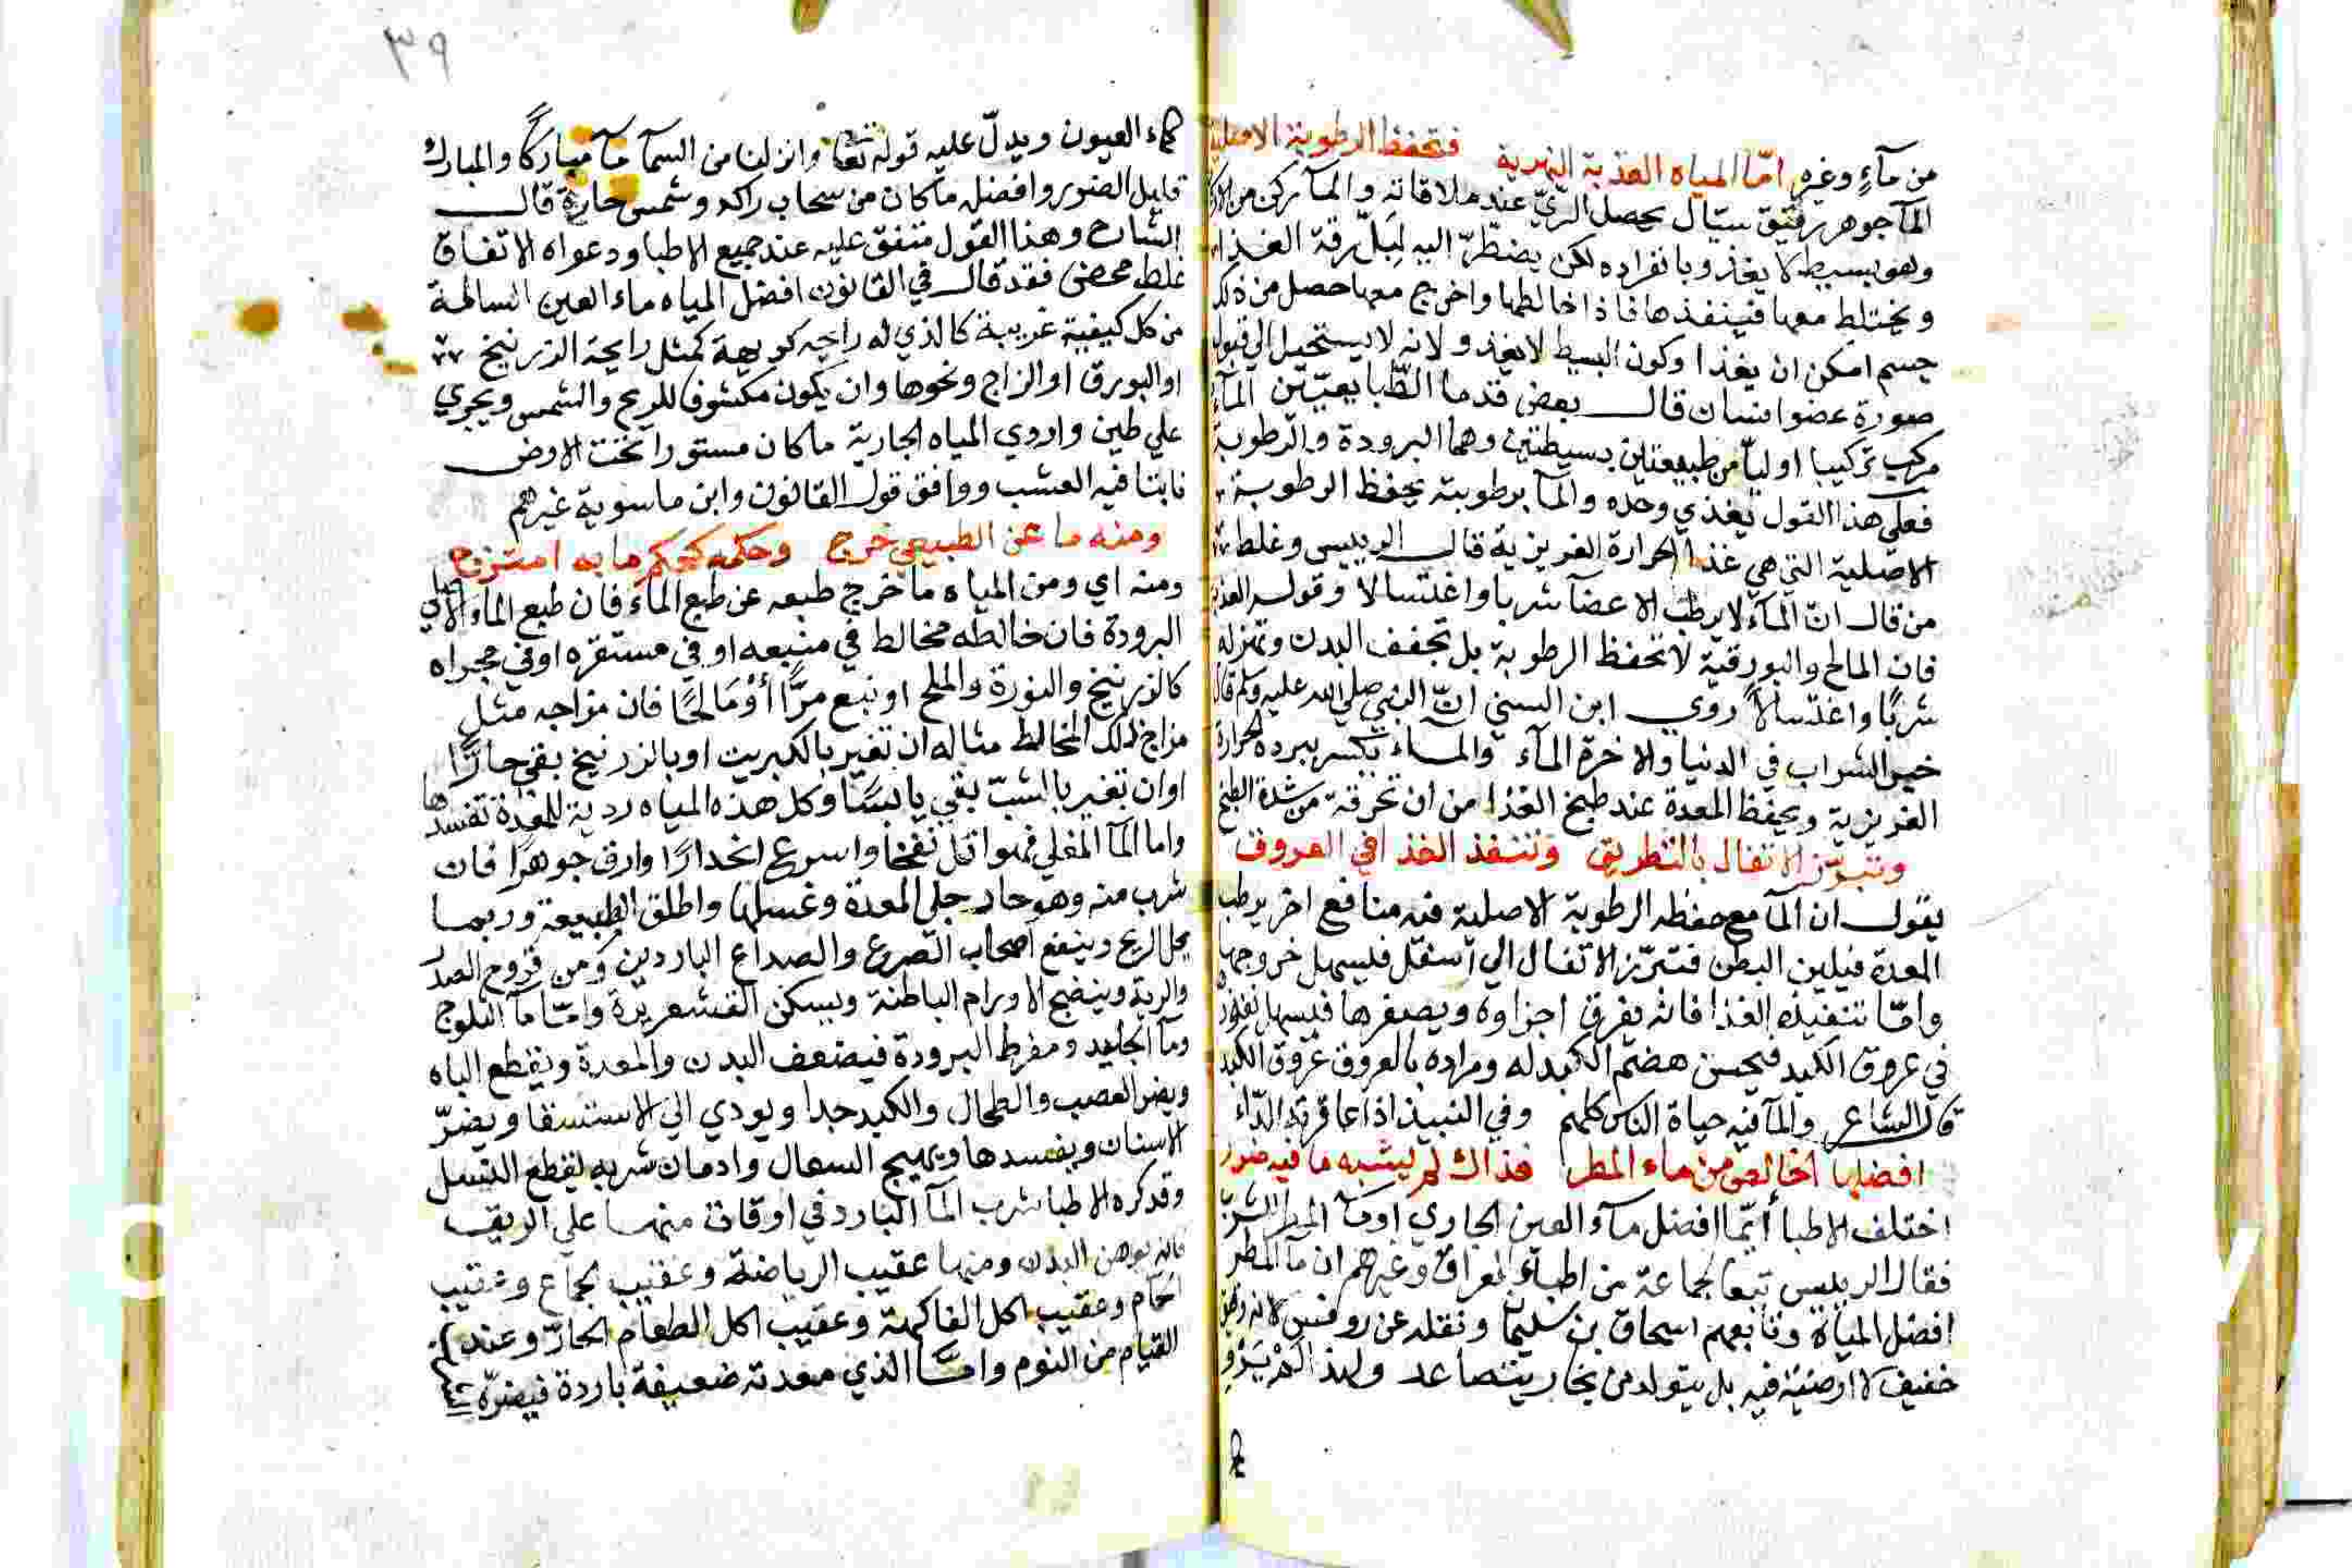 من مآءٍ وغيره امّا المياه العذبة النهرية فتحفظ الرطوبة الاصلية
المآ جوهر رقيق سيّال يحصل الريّ عند ملاقاته والمآ ركن من الاركان
وهو بسيط لا يغذو بانفراده لكن يضطرّ اليه لِيَبلّ رقة الغذا
ويختلط معها فينفذها فاذا خالطها واخرج معها حصل من ذلك
جسم امكن ان يغذا وكون البسيط لا يغذو لانه لا يستحيل الي قبول
صورة عضو انسان قال بعض قدما الطّبايعيّين المآء
مركب تركيبا اوليّا من طبيعتين بسيطتين وهما البرودة والرطوبة
فعلي هذا القول يغذي وحده والمآ برطوبته يحفظ الرطوبة
الاصلية التي هي غذا الحرارة الغريزية قال الرييس وغلط
من قال انّ المآء لا يرطب الاعضآ شربا واغتسالا وقوله العذبة
فان المالح والبورقية لا تحفظ الرطوبة بل تجفف البدن وتهزله
شربًا واغتسالاً روي ابن السني انّ النبي صلي الله عليه وسلم قال
خير الشراب في الدنيا والاخرة المآء والمآء يكسر ببرده الحرارة
الغريزية ويحفظ المعدة عند طبخ الغذا من ان تحرقه من شدة الطبخ
وتبرّز الاثفال بالتطريق وتنفذ الغذا في العروق
يقول ان المآ مع حفظه الرطوبة الاصلية فيه منافع اخر يرطب
المعدة فيلين البطن فتبرّز الاثفال الي اسفل فيسهل خروجها
وامّا تنفيذه الغذا فانه يفرق اجزاوه ويصغرها فيسهل نفوذه
في عروق الكبد فيحسن هضم الكبد له ومراده بالعروق عروق الكبد
قال الشاعر والمآ فيه حياة الناس كلهم وفي النبيذ اذا عاقرته الدّآء
افضلها الخالص من ماء المطر فذاك لم يشبه ما فيه ضرر
اختلف الاطبا أيّما افضل مآء العين الجاري او مآ المطر
فقال الرييس تبعا لجماعة من اطباء العراق وغيرهم ان مآ المطر
افضل المياه وتابعهم اسحاق بن سليمان ونقله عن روفس لانه
خفيف لا ارضية فيه بل يتولد من بخار يتصاعد ولهذا
كماء العيون ويدلّ عليه قوله تعا وانزلنا من السمآ مآ مباركًا والمبارك
قليل الضرر وافضله ما كان من سحاب راكد وشمس حارة قال
الشارح وهذا القول متفق عليه عند جميع الاطبا ودعواه الاتفاق
غلط محض فقد قال في القانون افضل المياه ماء العين السالمة
من كل كيفية غريبة كالذي له رايحة كريهة كمثل رايحة الزرنيخ
او البورق او الزاج ونحوها وان يكون مكشوفا للريح والشمس ويجري
علي طين واردي المياه الجارية ما كان مستورا تحت الارض
نابتا فيه العشب ووافق قول القانون وابن ماسوية غيرهم
ومنه ما عن الطبيعي خرج وحكمه كحكم ما به امتزج
ومنه اي ومن المياه ما خرج طبعه عن طبع الماء فان طبع الماء الاصلي
البرودة فان خالطه مخالط في منبعه او في مستقرّه او في مجراه
كالزرنيخ والنورة والملح او نبع مرًّا أوْ مَالحًا فان مزاجه مثل
مزاج ذلك المخالط مثاله ان تغير بالكبريت او بالزرنيخ بقي حارًّا
او ان تغير بالشبّ بقي يابسًا وكل هذه المياه ردية للمعدة تفسدها
واما المآ المغلي فهو اقل نفخا واسرع انحدارًا وارق جوهرًا فان
شرب منه وهو حار جلي المعدة وغسلها واطلق الطبيعة وربما
يحل الريح وينفع اصحاب الصرع والصداع الباردين ومن قروح الصدر
والرية وينضج الاورام الباطنة ويسكن القشعريرة وامّا مآ الثلوج
ومآ الجليد ومفرط البرودة فيضعف البدن والمعدة ويقطع الباه
ويضر العصب والطحال والكبد جدا ويودي الي الاستسقا ويضرّ
الاسنان ويفسدها ويهيج السعال وادمان شربه يقطع النسل
وقد كره الاطبا شرب المآ البارد في اوقات منها علي الريق
فانه يوهن البدن ومنها عقيب الرياضة وعقيب الجماع وعقيب
الحمام وعقيب اكل الفاكهة وعقيب اكل الطعام الحارّ وعند
القيام من النوم وامّا الذي معدته ضعيفة باردة فيضرّه
٣٩